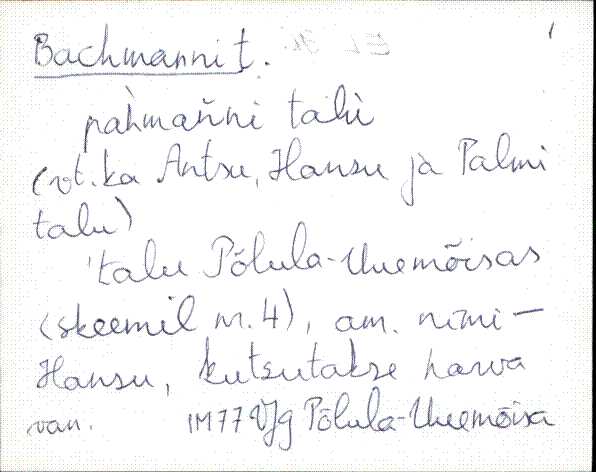 Bachmanni t.
1
pahmańni talù
(vt. ka Antsu, Hansu ja Palmi
talu)
'talu Põlula-Uuemõisas
(skeemil nr. 4), am. nimi -
Hansu, kutsutakse harva
van. IM 77 VJg Põlula-Uuemõisa